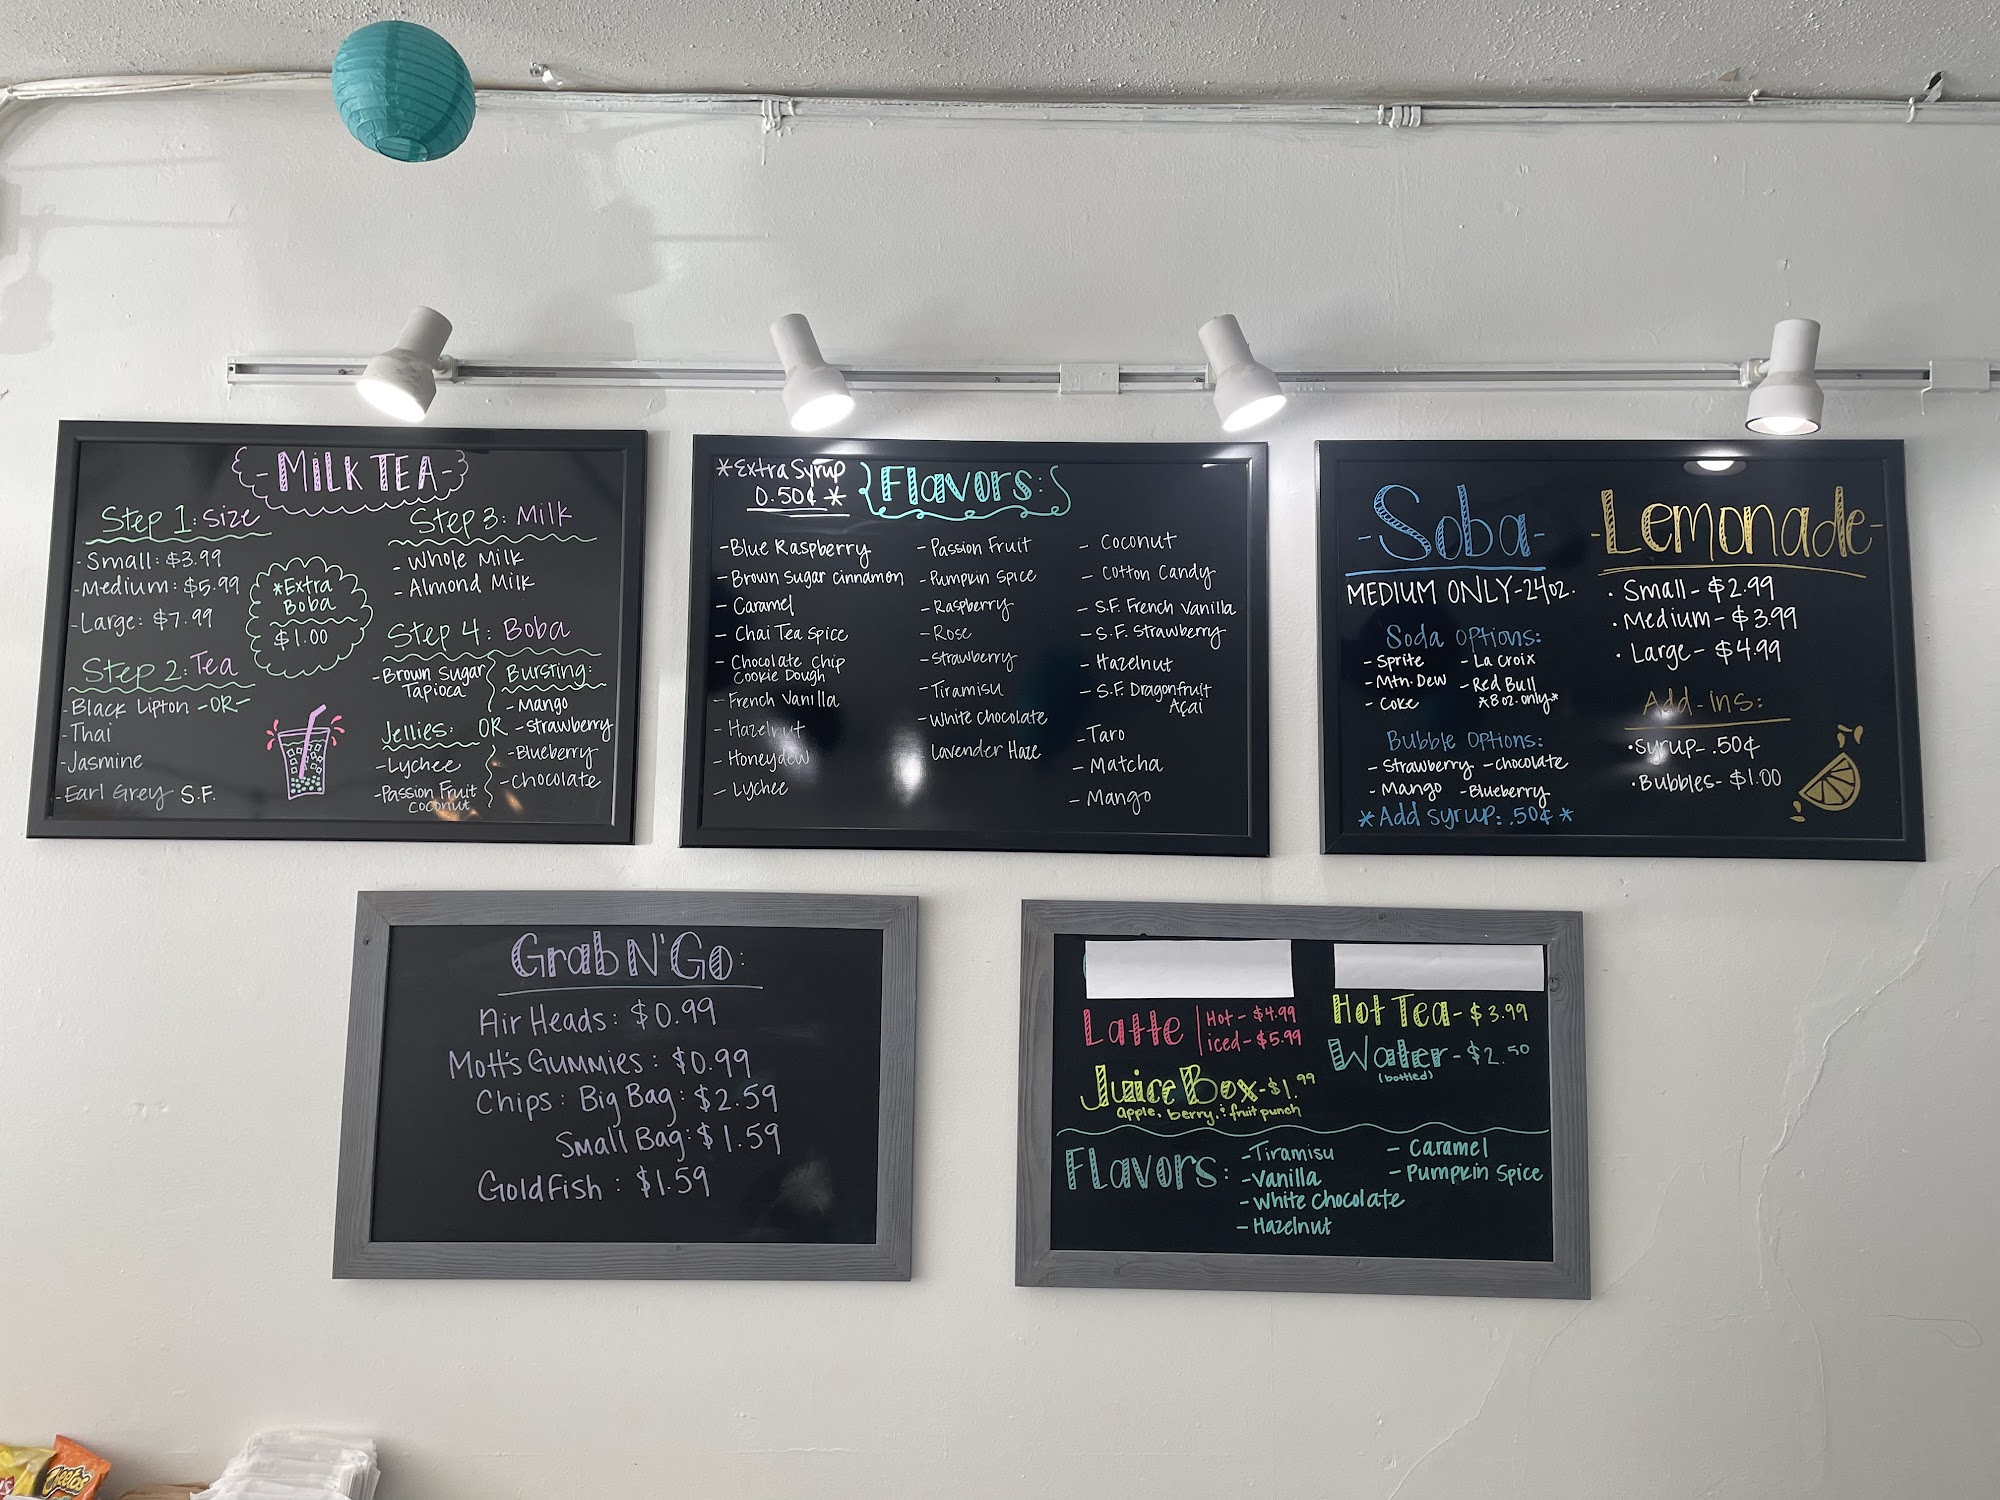 -MILK TEA-
Step 1: Size
- Small: $3.99
- Medium: $5.99
- Large: $7.99
*Extra
Boba
$1.00
Step 2: Tea
- Black Lipton -OR-
- Thai
- Jasmine
- Earl Grey S.F.
Step 3: Milk
- Whole Milk
- Almond Milk
Step 4: Boba
- Brown Sugar
Tapioca
Jellies: OR
- Lychee
- Passion Fruit
coconut
Bursting:
- Mango
- Strawberry
- Blueberry
- Chocolate
*Extra Syrup
0.50¢*
Flavors:
- Blue Raspberry
- Brown Sugar Cinnamon
- Caramel
- Chai Tea Spice
- Chocolate Chip
Cookie Dough
- French Vanilla
- Hazelnut
- Honeydew
- Lychee
- Passion Fruit
- Pumpkin Spice
- Raspberry
- Rose
- Strawberry
- Tiramisu
- White Chocolate
- Lavender Haze
- Coconut
- Cotton Candy
- S.F. French Vanilla
- S.F. Strawberry
- Hazelnut
- S.F. Dragonfruit
Açai
- Taro
- Matcha
- Mango
-Soba-
MEDIUM ONLY-24oz.
Soda Options:
- Sprite
- Mtn. Dew
- Coke
- La Croix
- Red Bull
*8 oz. only*
Bubble Options:
- Strawberry - Chocolate
- Mango - Blueberry
*Add Syrup: .50¢*
-Lemonade-
• Small - $2.99
• Medium - $3.99
• Large - $4.99
Add-Ins:
• Syrup - .50¢
• Bubbles - $1.00
Grab N' Go:
Air Heads: $0.99
Mott's Gummies: $0.99
Chips: Big Bag: $2.59
Small Bag: $1.59
Goldfish: $1.59
Latte
Hot - $4.99
iced - $5.99
Juice Box - $1.99
apple, berry, & fruit punch
Hot Tea - $3.99
Water - $2.50
(bottled)
Flavors:
- Tiramisu
- Vanilla
- White Chocolate
- Hazelnut
- Caramel
- Pumpkin Spice
Cheetos